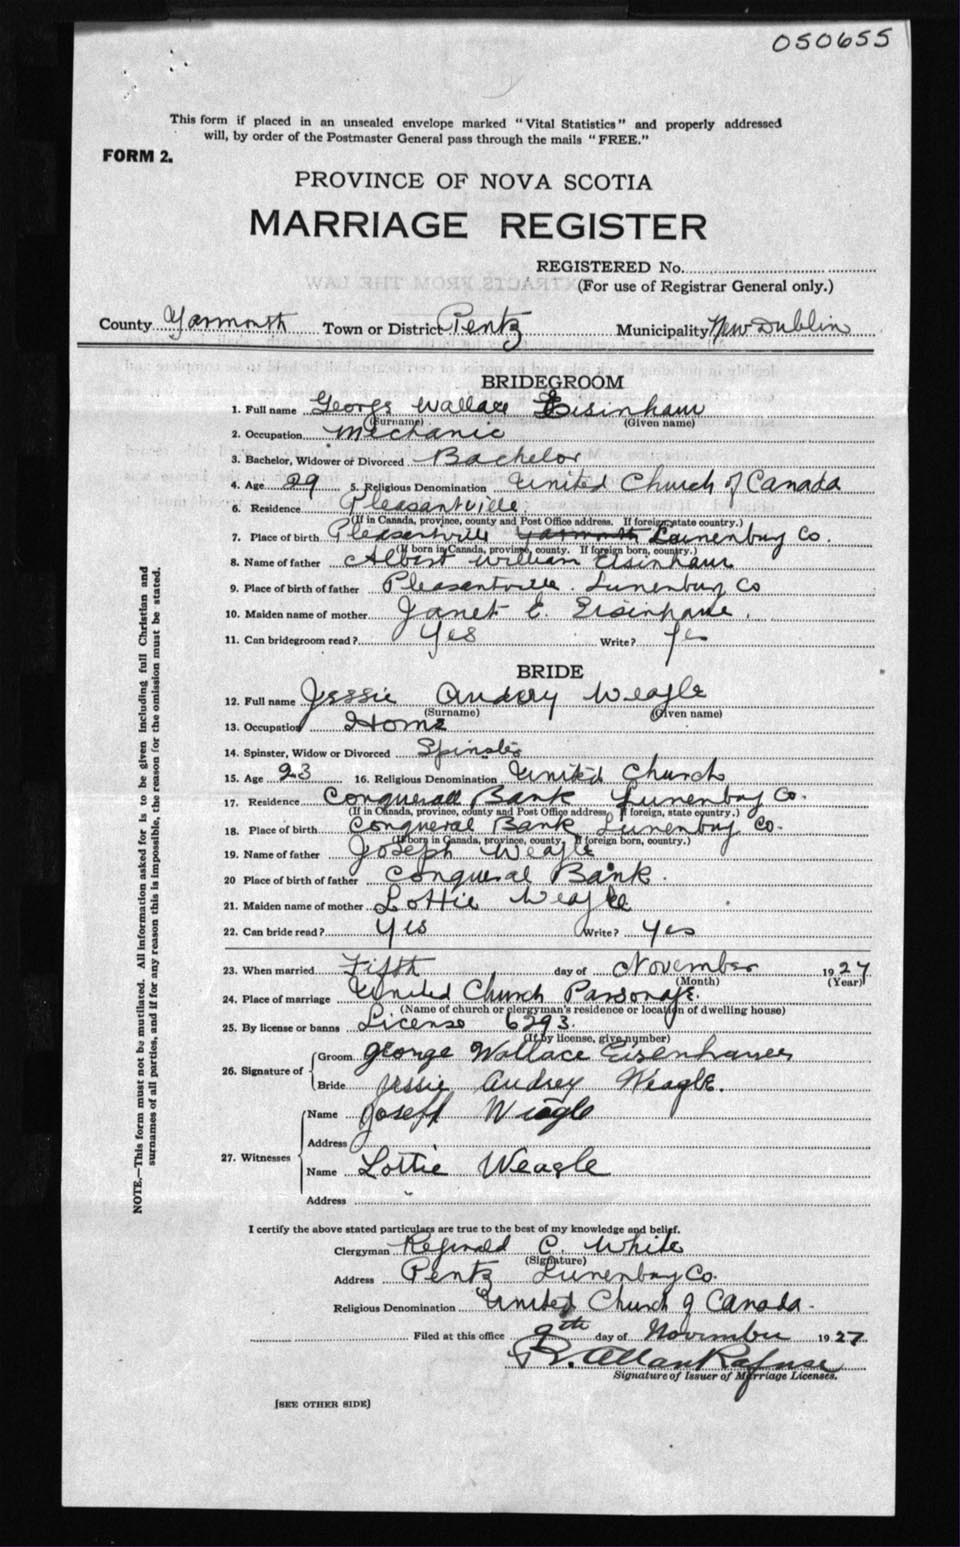 050655
This form if placed in an unsealed envelope marked "Vital Statistics" and properly addressed
will, by order of the Postmaster General pass through the mails "FREE."
FORM 2.
PROVINCE OF NOVA SCOTIA
MARRIAGE REGISTER
REGISTERED No.
(For use of Registrar General only.)
County Yarmouth Town or District Pentz Municipality New Dublin
BRIDEGROOM
1. Full name George Wallace Eisinhaur
(Surname) (Given name)
2. Occupation Mechanic
3. Bachelor, Widower or Divorced Bachelor
4. Age 29 5. Religious Denomination United Church of Canada
6. Residence Pleasantville
(If in Canada, province, county and Post Office address. If foreign, state country.)
7. Place of birth Pleasentville Yarmouth Lunenburg Co.
(If born in Canada, province, county. If foreign born, country.)
8. Name of father Albert William Eisinhaur
9. Place of birth of father Pleasentville. Lunenburg Co
10. Maiden name of mother Janet E. Eisinhaur.
11. Can bridegroom read? Yes Write? Yes
BRIDE
12. Full name Jessie Audery Weagle
(Surname) (Given name)
13. Occupation Home
14. Spinster, Widow or Divorced Spinster
15. Age 23 16. Religious Denomination United Church
17. Residence Conquerall Bank Lunenburg Co.
(If in Canada, province, county and Post Office address, If foreign, state country.)
18. Place of birth Conqueral Bank Lunenburg Co.
(If born in Canada, province, county. If foreign born, country.)
19. Name of father Joseph Weagle
20 Place of birth of father Conqueral Bank.
21. Maiden name of mother Lottie Weagle
22. Can bride read? Yes Write? Yes
23. When married Fifth day of November 1927
(Month) (Year)
24. Place of marriage United Church Parsonage.
(Name of church or clergyman's residence or location of dwelling house)
25. By license or banns License 6293.
(If by license, give number)
26. Signature of Groom George Wallace Eisenhauer
Bride Jessie Audrey Weagle.
27. Witnesses Name Joseph Weagle
Address
Name Lottie Weagle
Address
I certify the above stated particulars are true to the best of my knowledge and belief.
Clergyman Reginald C. White
(Signature)
Address Pentz Lunenburg Co.
Religious Denomination United Church of Canada.
Filed at this office 9th day of November 1927
R. Allan Rafuse
Signature of Issuer of Marriage Licenses.
[SEE OTHER SIDE]
NOTE.—This form must not be mutilated. All information asked for is to be given including full Christian and
surnames of all parties, and if for any reason this is impossible, the reason for the omission must be stated.